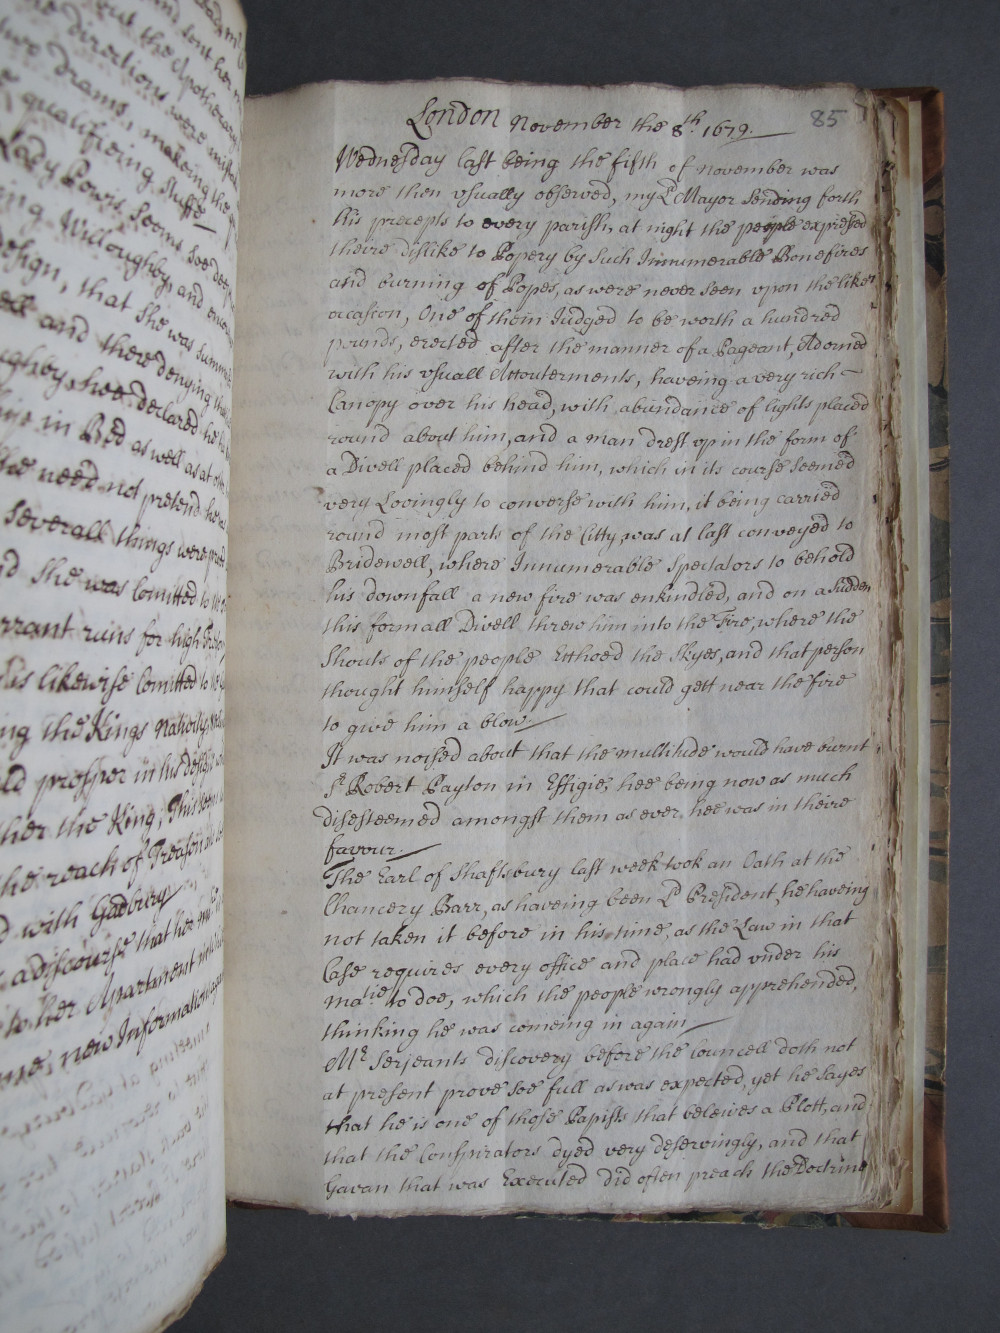 London November the 8th 1679.
85
Wednesday last being the fifth of November was
more then usually observed, my Ld Mayor Sending forth
his precepts to every parish, at night the people expressed
theire dislike to Popery by such Innumerable Bonefires
and burning of Popes, as were never seen upon the like
occasion, One of them Judged to be worth a hundred
pounds, erected after the manner of a Pageant, Adorned
with his usuall Attouterments, haveing a very rich
Canopy over his head, with abundance of lights placed
round about him, and a man drest up in the form of
a Divell placed behind him, which in its course seemed
very Lovingly to converse with him, it being carried
round most parts of the Citty was at last conveyed to
Bridewell, where Innumerable Spectators to behold
his downfall a new fire was enkindled, and on a Sudden
this formall Divell threw him into the Fire, where the
Shouts of the people Etthoed the Skyes, and that person
thought himself happy that could gett near the fire
to give him a blow.
It was noised about that the multitude would have burnt
Sr Robert Payton in Effigie, hee being now as much
disesteemed amongst them as ever hee was in theire
favour.
The Earl of Shaftsbury last week took an Oath at the
Chancery Barr, as haveing been Ld President, he haveing
not taken it before in his time, as the Law in that
Case requires every office and place had under his
Matie to doe, which the people wrongly apprehended,
thinking he was comeing in again
Mr Serjeants discovery before the Councell doth not
at present prove soe full as was expected, yet he sayes
that he is one of those Papists that beleives a Plott, and
that the Conspirators dyed very deservingly, and that
Gavan that was Executed did often preach the Doctrine
two Drams, making the
qualifieing Stuffe
Lady Powis, seems soe
Willoughby, and
design, that she was
ell and there denying
ughby, hee declared he
in Bed as well as at
need not pretend he
severall things were
nd she was Comitted to
rrant runs for high Treason
likewise Comitted to
ng the Kings Nativity
ld prosper in his designe
ther the King, This
the reach of Treason
d with Gadbury
a discourse that her
to her Apartment
me, new Information